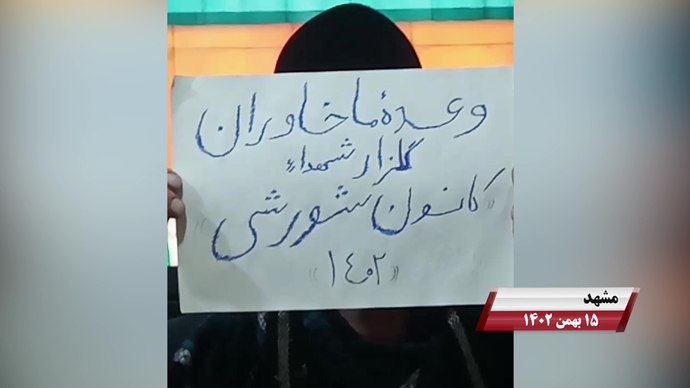 وعدهٔ ما خاوران
گلزار شهداء
«کانون شورشی»
«۱۴۰۲»
مشهد
۱۵ بهمن ۱۴۰۲